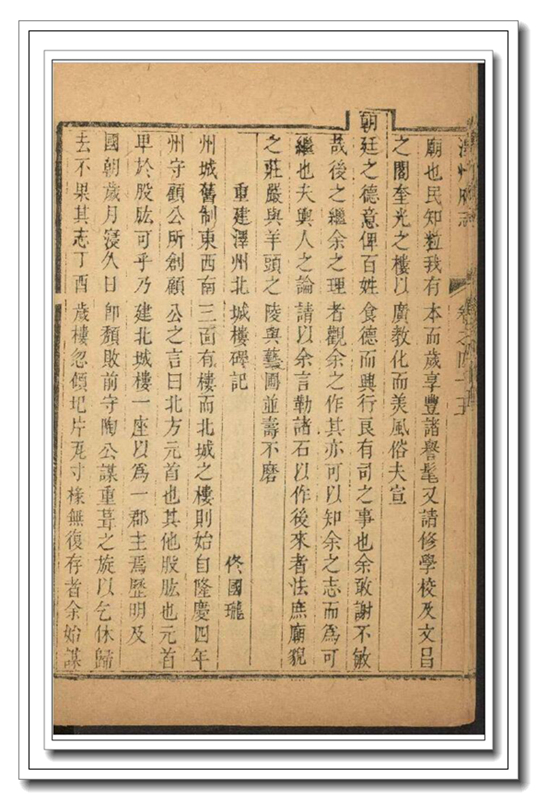 澤州府志
廟也民知粒我有本而歲享豐諸譽髦又請修學校及文昌
之閣奎光之樓以廣教化而美風俗夫宣
朝廷之德意俾百姓食德而興行良有司之事也余敢謝不敏
哉後之繼余之理者觀余之作其亦可以知余之志而爲可
繼也夫輿人之論請以余言勒諸石以作後來者怯庶廟貌
之莊嚴與羊頭之陵與藝圃並壽不磨
重建澤州北城樓碑記
佟國瓏
州城舊制東西南三面有樓而北城之樓則始自隆慶四年
州守顧公所創顧公之言曰北方元首也其他股肱也元首
卑於股肱可乎乃建北城樓一座以爲一郡主焉歷明及
國朝歲月寖久日卽頹敗前守陶公謀重葺之旋以乞休歸
去不果其志丁酉歲樓忽傾圯片瓦寸椽無復存者余始謀